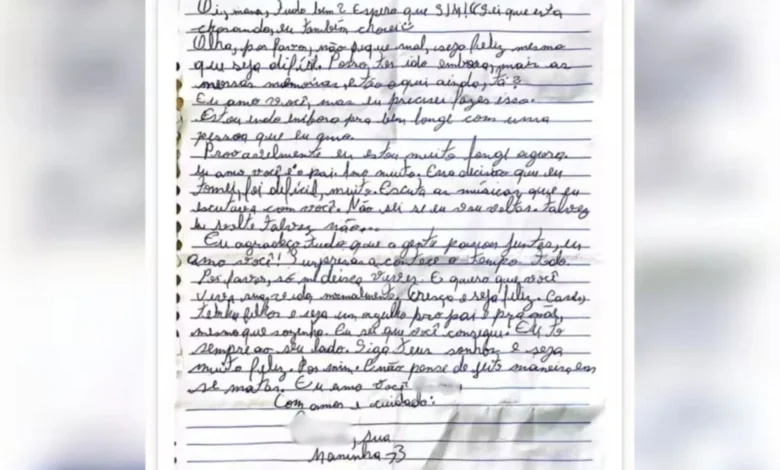 Oi, mana, tudo bem? Espero que SIM! (Sei que esta
chorando, eu também chorei
Olha, por favor, não fique mal, seja feliz mesmo
que seja difícil. Posso ter ido embora, mais as
nossas memórias, estão aqui ainda, tá?
Eu amo você, mas eu precisei fazer isso.
Estou indo embora pra bem longe com uma
pessoa que eu amo.
Provavelmente eu estou muito longe agora.
Eu amo você e o pai muito. Essa decisão que eu
tomei, foi difícil, muito. Escuta as músicas que eu
escutava com você. Não sei se eu vou voltar. talvez
eu volte talvez não...
Eu agradeço tudo que a gente passou juntas, eu
amo você! Surpresas acontece o tempo todo.
Por favor, só me deixa viver. E quero que você
viva sua vida normalmente. Cresça e seja feliz. Case,
tenha filhos e seja um orgulho pro pai e pra mãe,
mesmo que sozinha. Eu sei que você consegue. Eu tô
sempre ao seu lado. Siga teus sonhos e seja
muito feliz. Por mim. E não pense de jeito maneira em
se matar. Eu amo você
Com amor e cuidado:
, sua
Maninha <3